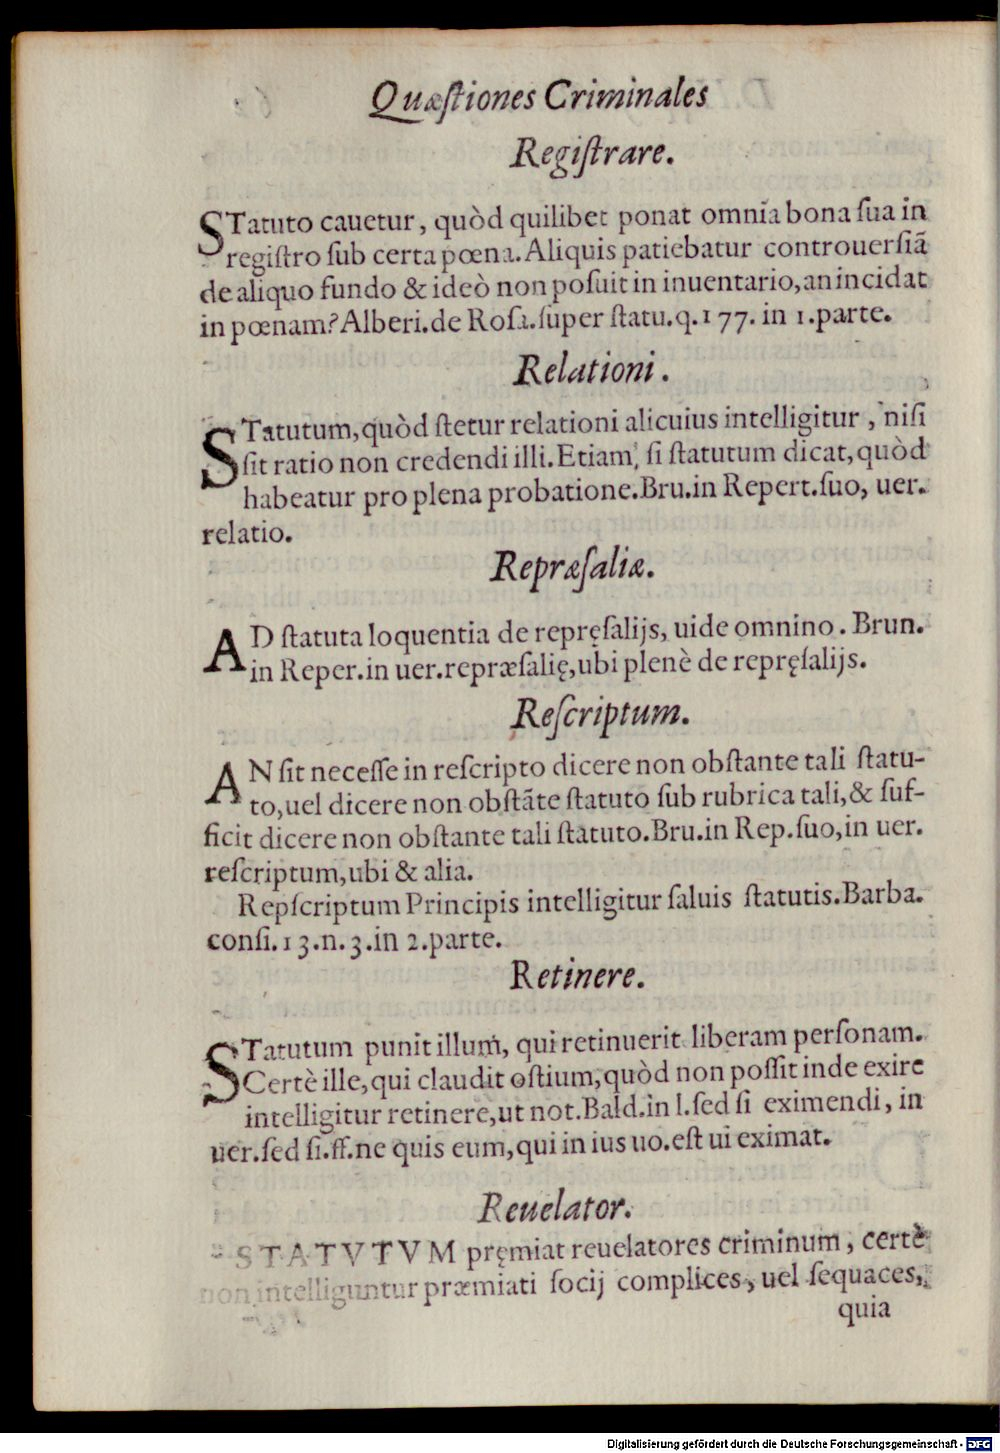 Quæſtiones Criminales
Regiſtrare.
STatuto cauetur, quòd quilibet ponat omnia bona ſua in
regiſtro ſub certa pœna. Aliquis patiebatur controuerſiã
de aliquo fundo & ideò non poſuit in inuentario, an incidat
in pœnam? Alberi. de Roſa. ſuper ſtatu. q. 177. in 1. parte.
Relationi.
STatutum, quòd ſtetur relationi alicuius intelligitur, niſi
ſit ratio non credendi illi. Etiam, ſi ſtatutum dicat, quòd
habeatur pro plena probatione. Bru. in Repert. ſuo, uer.
relatio.
Repræſaliæ.
AD ſtatuta loquentia de repręſalijs, uide omnino. Brun.
in Reper. in uer. repræſalię, ubi plenè de repręſalijs.
Reſcriptum.
AN ſit neceſſe in reſcripto dicere non obſtante tali ſtatu-
to, uel dicere non obſtãte ſtatuto ſub rubrica tali, & ſuf-
ficit dicere non obſtante tali ſtatuto. Bru. in Rep. ſuo, in uer.
reſcriptum, ubi & alia.
Repſcriptum Principis intelligitur ſaluis ſtatutis. Barba.
conſi. 13. n. 3. in 2. parte.
Retinere.
STatutum punit illum, qui retinuerit liberam perſonam.
Certè ille, qui claudit oſtium, quòd non poſſit inde exire
intelligitur retinere, ut not. Bald. in l. ſed ſi eximendi, in
uer. ſed ſi. ff. ne quis eum, qui in ius uo. eſt ui eximat.
Reuelator.
STATVTVM pręmiat reuelatores criminum, certè
non intelliguntur præmiati ſocij complices, uel ſequaces,
quia
Digitalisierung gefördert durch die Deutsche Forschungsgemeinschaft - DFG